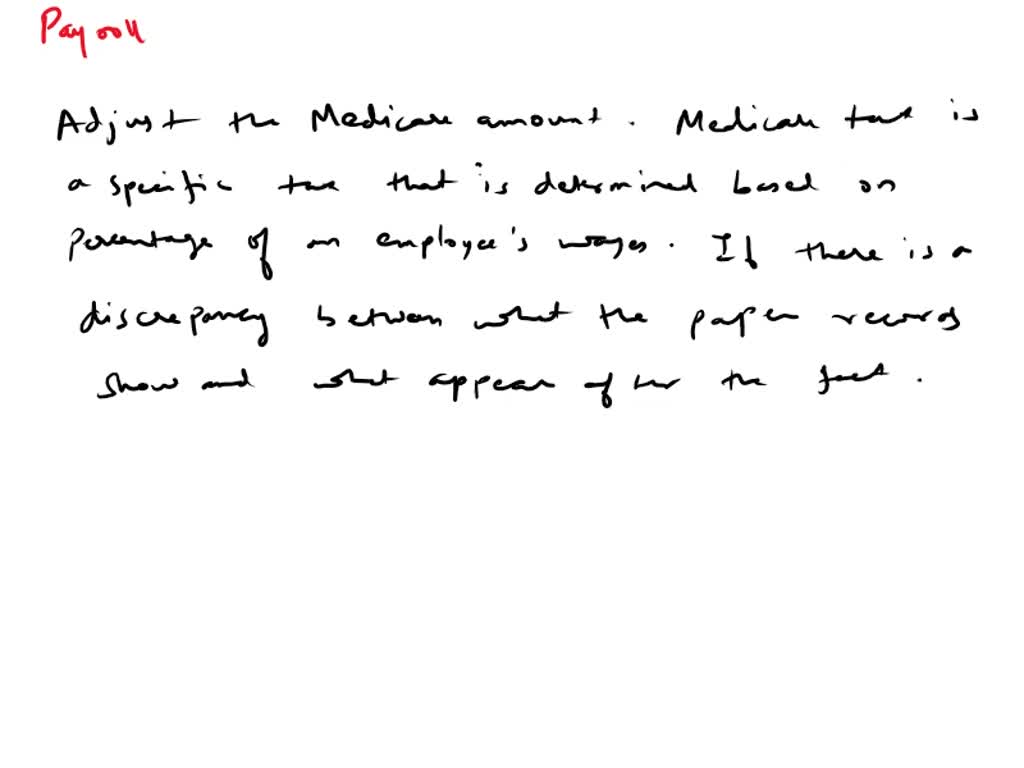 Payroll
Adjust the Medicare amount. Medicare tax is
a specific tax that is determined based on
percentage of an employee's wages. If there is a
discrepancy between what the paper records
show and what appear after the fact.